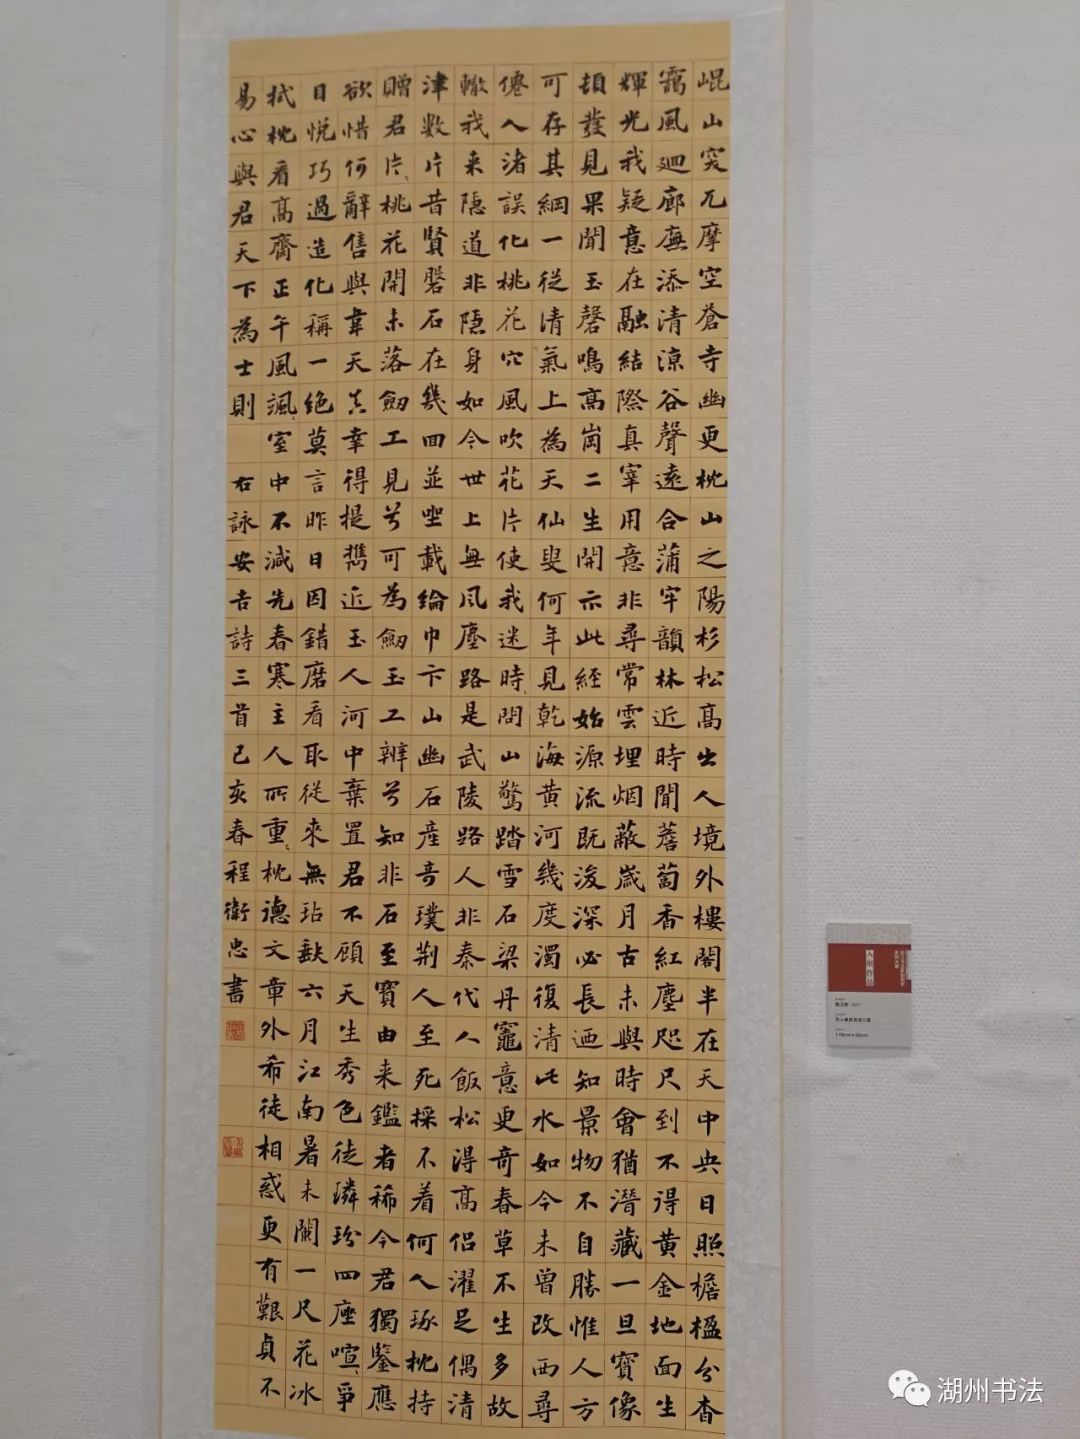 崐山突兀摩空蒼寺幽更枕山之陽杉松高出人境外樓閣半在天中央日照檐楹分杳
靄風廻廊廡添清涼谷聲遠合蒲牢韻林近時聞薝蔔香紅塵咫尺到不得黃金地面生
輝光我疑意在融結際真宰用意非尋常雲埋烟蔽歲月古未與時會猶潛藏一旦寶像
頓發見果聞玉磬鳴高崗二生開示此經始源流既浚深必長迺知景物不自勝惟人方
可存其綱一從清氣上為天仙叟何年見乾海黃河幾度濁復清此水如今未曾改西尋
僊人渚誤化桃花穴風吹花片使我迷時問山驚踏雪石梁丹竈意更奇春草不生多故
轍我來隱道非隱身如今世上無風塵路是武陵路人非秦代人飯松得高侶濯足偶清
津數片昔賢磐石在幾回並坐載綸巾卞山幽石產奇璞荆人至死採不着何人琢枕持
贈君片片桃花開未落劒工見兮可為劒玉工辨兮知非石至寶由來鑑者稀今君獨鑒應
欲惜何辭售與韋天真幸得提攜近玉人河中棄置君不顧天生秀色徒璘玢四座喧爭
日悅巧過造化稱一絕莫言昨日因錯磨看取從來無玷缺六月江南暑未闌一尺花冰
試枕看高齋正午風颯室中不減先春寒主人所重重枕德文章外希徒相惑更有艱貞不
易心與君天下為士則 右詠安吉詩三首己亥春程衛忠書
入展作品
湖州书法